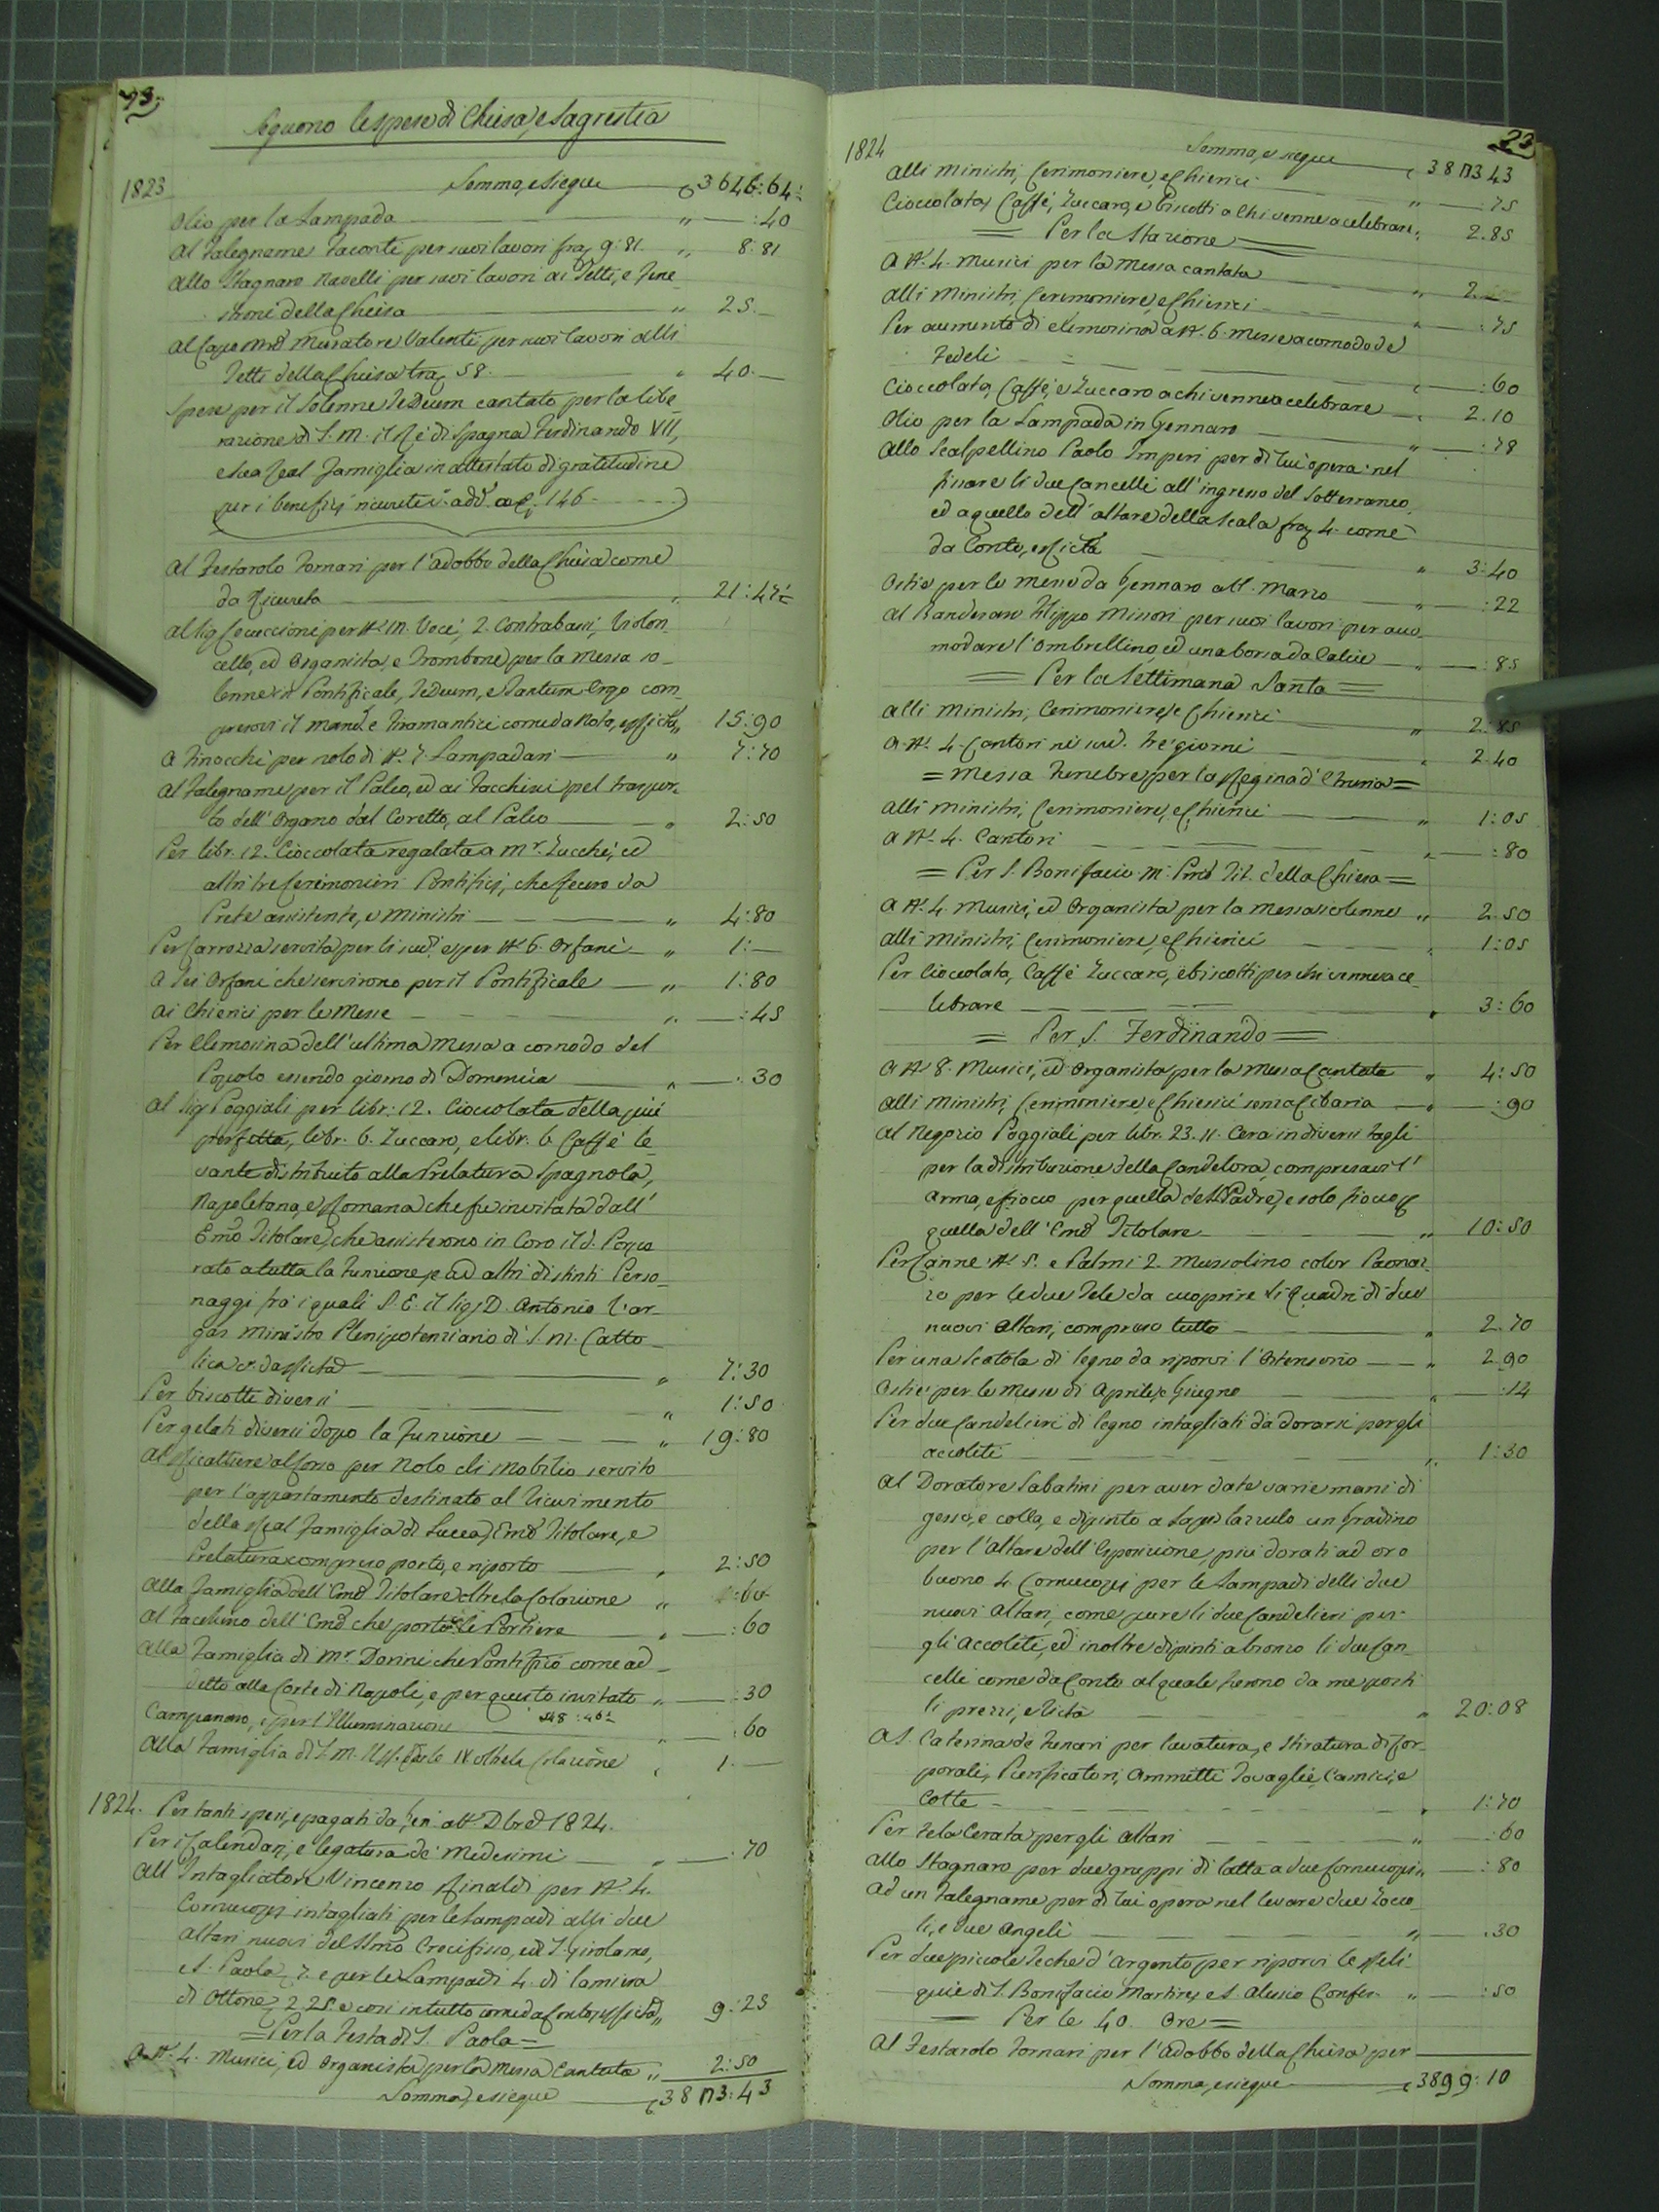 93.
Seguono le spese di Chiesa, e Sagrestia
1823 Somma, e siegue 3646:64½
Olio per la Lampada — " — :40
Al Falegname Taconti per suoi lavori fra 9:81. " 8:81
Allo Stagnaro Navelli per suoi lavori ai Tetti, e Fine
stroni della Chiesa — " 25.—
Al Capo Mro Muratore Valenti per suoi lavori alli
Tetti della Chiesa fra 58. — " 40.—
Spese per il Solenne Te Deum cantato per la libe-
razione di S. M. il Ré di Spagna Ferdinando VII,
e Sua Real Famiglia in attestato di gratitudine
per i benefizj ricevuti 146
Al Festarolo Fornari per l'adobbo della Chiesa come
da Ricevuta — " 21:47½
Al Sig per N. 10. Voci, 2. Contrabassi, Violon-
cello, ed Organista, e Trombone per la Messa so-
lenne in Pontificale, Te Deum, e Tantum Ergo com-
presovi il mand.e Tiramantici come da Nota, e Ricta " 15:90
A Finocchi per nolo di N. 7. Lampadari — " 7:70
Al Falegname per il Palco, ed ai Facchini pel traspor-
to dell'Organo dal Coretto, al Palco — " 2:50
Per libr. 12. Cioccolata regalata a Mr. Zucché, ed
altri tre Cerimonieri Pontificj, che fecero da
Prete assistente, e Ministri — " 4:80
Per Carrozza servita per li sud. e per N. 6. Orfani — " 1:—
A Sei Orfani che servirono per il Pontificale — " 1:80
Ai Chierici per le Messe — " — :45
Per Elemosina dell'ultima Messa a comodo del
Popolo essendo giorno di Domenica — " — :30
Al Sig. Poggiali per libr: 12. Cioccolata della piu
perfetta, libr. 6. Zuccaro, e libr. 6 Caffé le-
vante distribuito alla Prelatura Spagnola,
Napoletana, e Romana che fu invitata dall'
Emo Titolare, che assisterono in Coro il d. Porpo
rato a tutta la Funzione, e ad altri distinti Perso-
naggi frá i quali S. E. il Sig. D. Antonio Var-
gas Ministro Plenipotenziario di S. M. Catto-
lica da Ricta — " 7:30
Per biscotti diversi — " 1:50
Per gelati diversi dopo la Funzione — " 19:80
Al Rigattiere al Corso per Nolo di mobilio servito
per l'appartamento destinato al ricevimento
della Real Famiglia di Lucca, Emo Titolare, e
Prelatura compreso porto, e riporto — " 2:50
Alla Famiglia dell'Emo Titolare oltre la Colazione " :60
Al Facchino dell'Emo che portò le Portiere — " — :60
Alla Famiglia di Mr. Dorini che Pontificó come ad-
detto alla Corte di Napoli, e per questo invitato " — :30
Campanaro, e per l'Illuminazione 148:46½ " :60
Alla Famiglia di S. M. il Rè Carlo IV oltre la Colazione " 1.—
1824. Per tanti spesi, e pagati da Gen. att. Dbre 1824.
Per i Calendarj, e legatura de' Medesimi — " — :70
All'Intagliatore Vincenzo Rinaldi per N. 4.
Cornucopj intagliati per le Lampadi alli due
Altari nuovi del SSmo Crocifisso, ed S. Girolamo,
e S. Paola 7. e per le Lampadi 4. di lamina
di Ottone 2.25. e cosí in tutto come da Conto, e Ricta " 9:25
= Per la Festa di S. Paola =
A N. 4. Musici, ed Organista per la Messa Cantata " 2:50
Somma, e siegue 3803:43
93
1824 Somma, e siegue 3803.43
Alli Ministri, Cerimoniere, e Chierici — " — :75
Cioccolata, Caffé, Zuccaro, e biscotti a chi venne a celebrare " 2.85
= Per la Stazione =
A N. 4. Musici per la Messa cantata — " 2.—
Alli Ministri, Cerimoniere, e Chierici — " — :75
Per aumento di elemosina a N. 6. Messe a comodo de'
Fedeli — " — :60
Cioccolata, Caffé, e Zuccaro a chi venne a celebrare — " 2.10
Olio per la Lampada in Gennaro — " — :78
Allo Scalpellino Paolo Imperi per di lui opera nel
fissare li due Cancelli all'ingresso del Sotterraneo,
ed a quello dell'altare della Scala fra 4. come
da Conto, e Ricta — " 3:40
Ostie per le messe da Gennaro att. Marzo — " — :22
Al Banderaro Filippo Missori per suoi lavori per acco-
modare l'Ombrellino, ed una borsa da Calice — " — :85
= Per la Settimana Santa =
Alli Ministri, Cerimoniere, e Chierici — " 2:85
A N. 4. Cantori ne' sud. tré giorni — " 2.40
= Messa Funebre per la Regina d'Etruria =
Alli Ministri, Cerimoniere, e Chierici — " 1:05
A N. 4. Cantori — " — :80
= Per S. Bonifacio M. Pmo Tit. della Chiesa =
A N. 4. Musici, ed Organista per la Messa solenne " 2.50
Alli Ministri, Cerimoniere, e Chierici — " 1:05
Per Cioccolata, Caffé Zuccaro, e biscotti per chi venne a ce-
lebrare — " 3:60
= Per S. Ferdinando =
A N. 8. Musici, ed Organista per la Messa Cantata " 4:50
Alli Ministri, Cerimoniere, e Chierici senza Cibaria — " — :90
Al Negozio Poggiali per libr. 23.11. Cera in diversi tagli
per la distribuzione della Candelora, compresavi l'
arma, e fiocco per quella del S. Padre, e solo fiocco p
quella dell'Emo Titolare — " 10:50
Per Canne N. 5. e Palmi 2. Mussolino color Paonaz-
zo per le due Tele da cuoprire li Quadri di due
nuovi Altari, compreso tutto — " 2.70
Per una Scatola di legno da riporvi l'Ostensorio — " 2.90
Ostie per le Messe di Aprile, e Giugno — " — :14
Per due Candelieri di legno intagliati da dorarsi per gli
accoliti — " 1:30
Al Doratore Sabatini per aver date varie mani di
gesso, e colla, e dipinto a Lapis lazzulo un Gradino
per l'altare dell'Esposizione, piú dorati ad oro
buono 4. Cornucopj per le Lampadi delli due
nuovi Altari, come pure li due Candelieri per
gli Accoliti, ed inoltre dipinti a bronzo li due Can-
celli come da Conto al quale furono da me posti
li prezzi, e Ricta — " 20:08
A S. Caterina de Funari per lavatura, e stiratura di Cor-
porali, Purificatori, Ammitti Tovaglie, Camici, e
Cotte — " 1:70
Per tela Cerata per gli altari — " — :60
Allo Stagnaro per due grappi di latta a due Cornucopj " — :80
Ad un Falegname per di lui opera nel levare due Zocco-
li, e due Angeli — " — :30
Per due piccole Teche d'Argento per riporvi le Reli-
quie di S. Bonifacio Martire, e S. Alessio Confes. " — :50
= Per le 40. Ore =
Al Festarolo Fornari per l'adobbo della Chiesa per
Somma, e siegue 3899:10